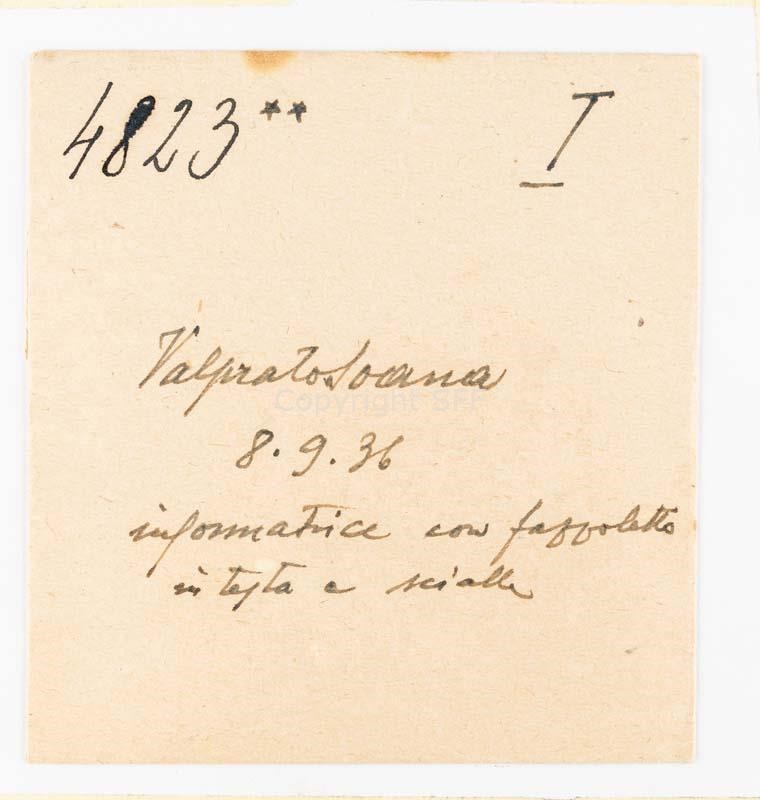 4823** I
Valprato Soana
Copyright SFI
8.9.36
informatrice con fazzoletto
in testa e scialle